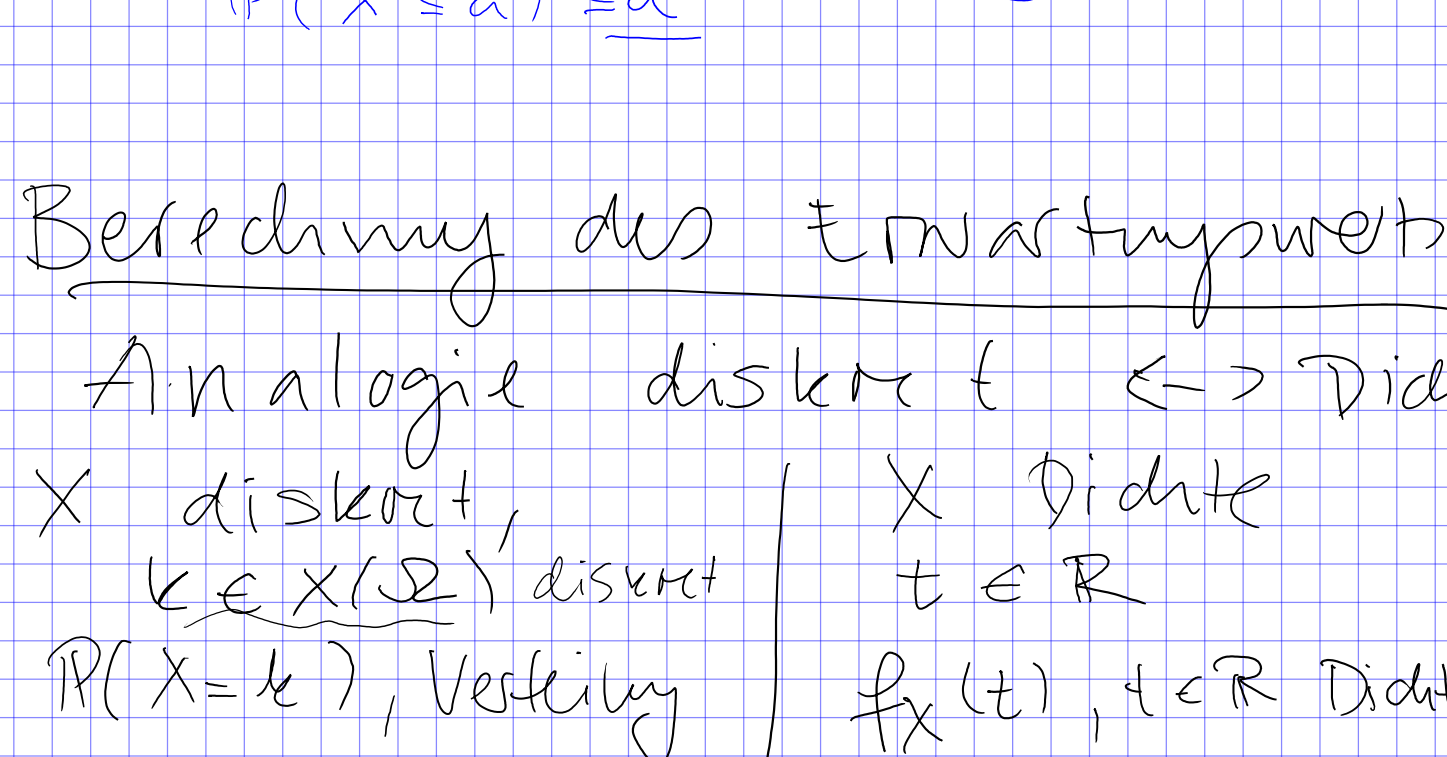 P(X ≤ a) = a
Berechnung des Erwartungswerts
Analogie diskret <-> Did
X diskret,
k ∈ X(Ω) diskret
ℙ(X=k), Verteilung
X Dichte
t ∈ ℝ
f_X(t), t ∈ ℝ Dicht